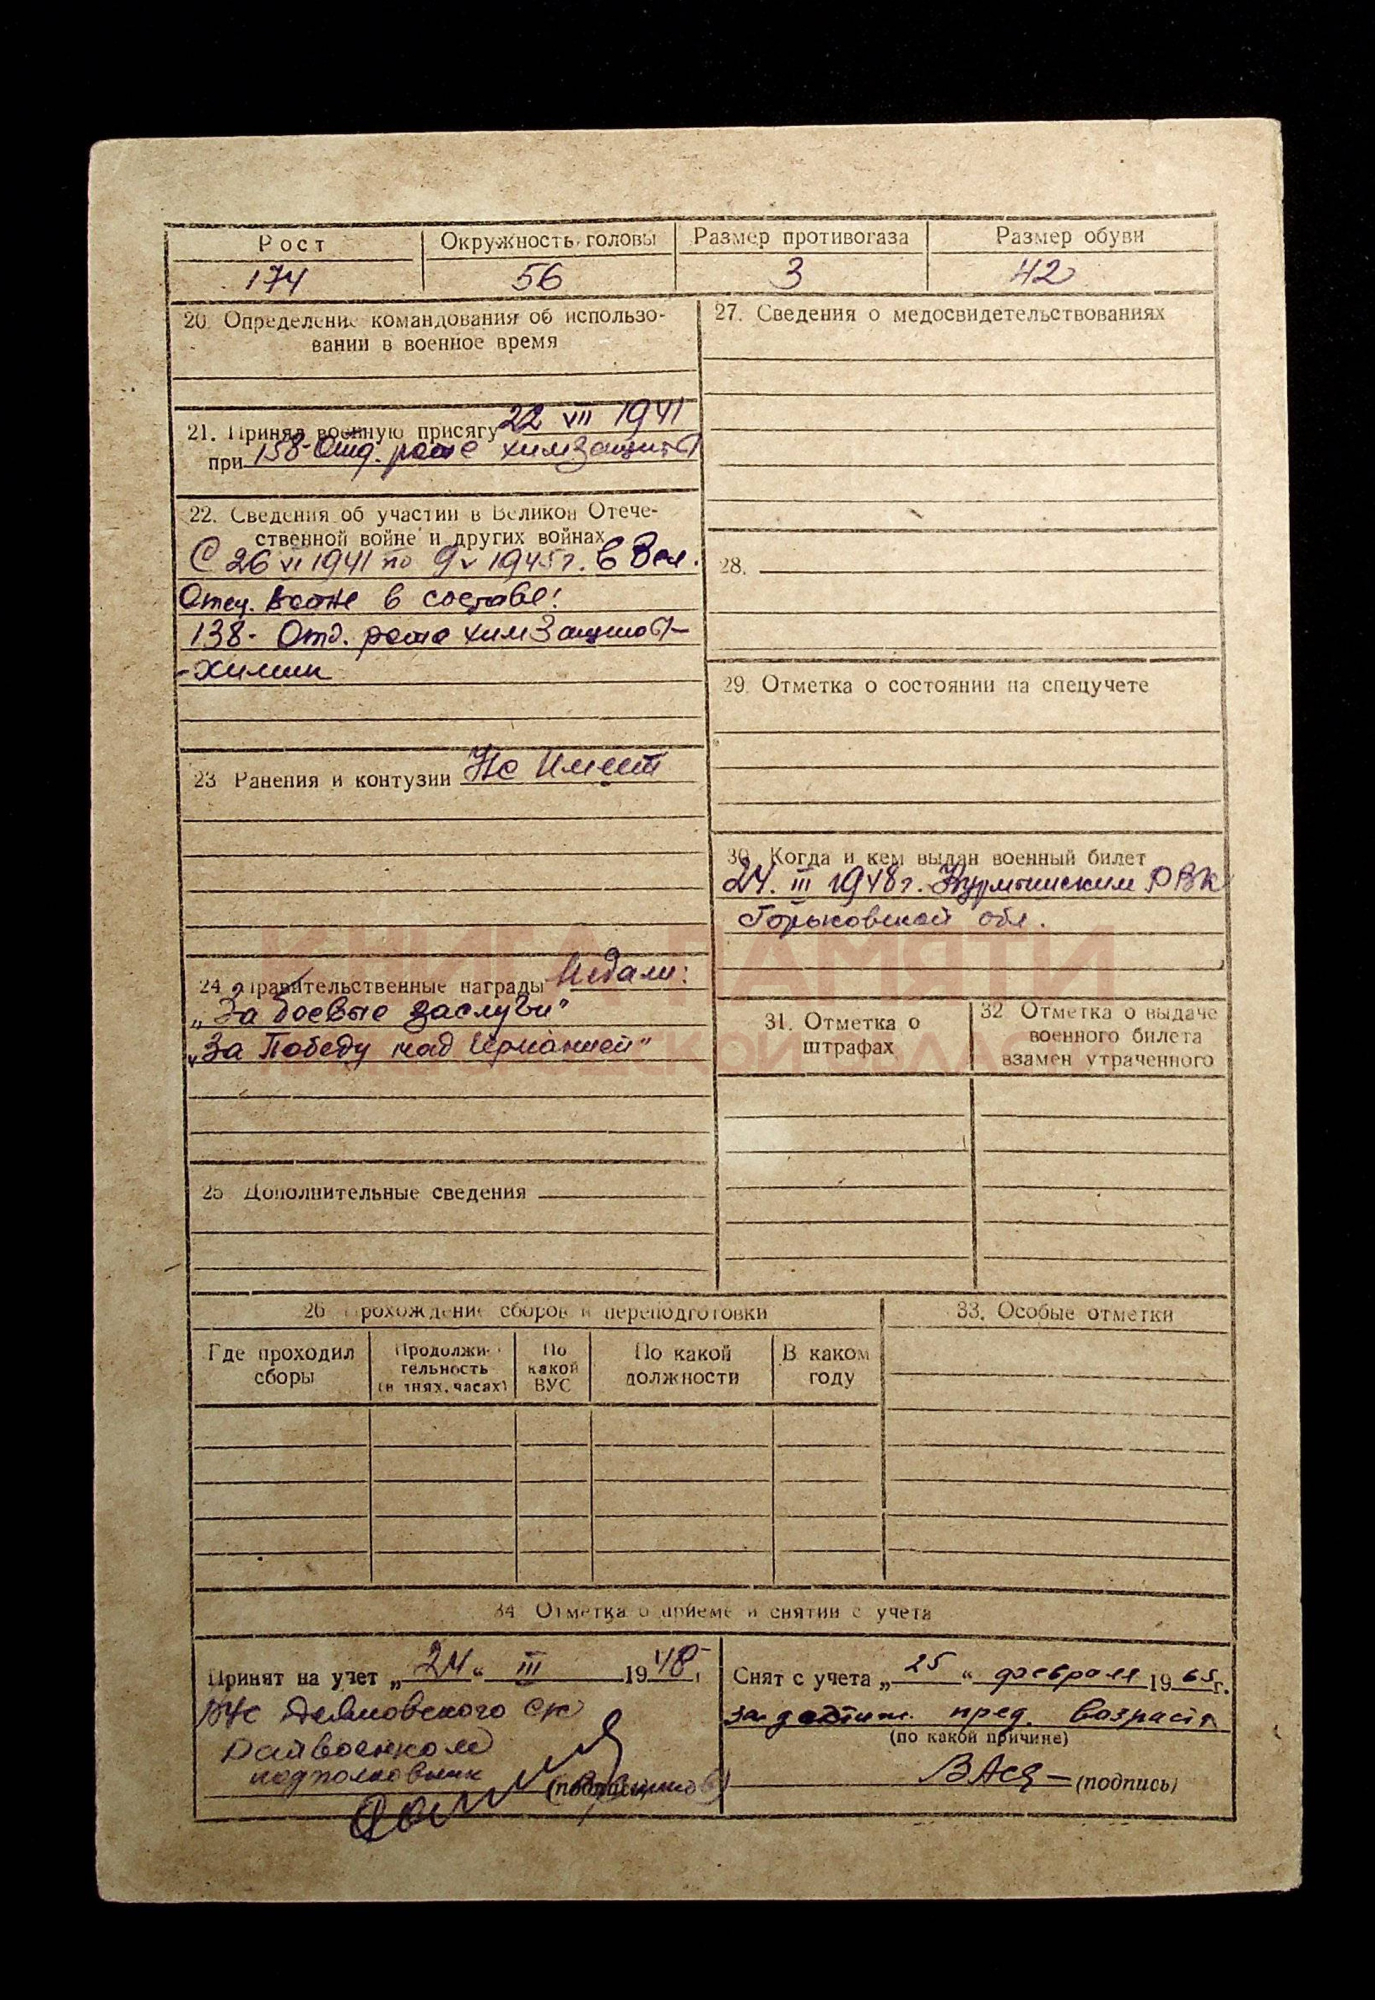 Рост
Окружность головы
Размер противогаза
Размер обуви
174
56
3
42
20. Определение командования об использо-
вании в военное время
21. Принял военную присягу 22 VII 1941
при 138-Отд. роте химзащиты
22. Сведения об участии в Великой Отече-
ственной войне и других войнах
С 26 VI 1941 по 9 V 1945 г. в Вел.
Отеч. войне в составе:
138- Отд. рота химзащиты-
-химик
23 Ранения и контузии Не имеет
24 Правительственные награды Медали:
„За боевые заслуги"
„За Победу над Германией"
25 Дополнительные сведения
26 Прохождение сборов и переподготовки
Где проходил
сборы
Продолжи-
тельность
(в днях, часах)
По
какой
ВУС
По какой
должности
В каком
году
27. Сведения о медосвидетельствованиях
28.
29 Отметка о состоянии на спецучете
30 Когда и кем выдан военный билет
24. III 1948 г. Курмышским РВК
Горьковской обл.
31. Отметка о
штрафах
32 Отметка о выдаче
военного билета
взамен утраченного
33. Особые отметки
КНИГА ПАМЯТИ
НИЖЕГОРОДСКОЙ ОБЛАСТИ
34 Отметка о приеме и снятии с учета
Принят на учет „24" III 1948 г
ВУС Деяновского СК
Райвоенком
подполковник
(подпись)
Снят с учета „25" февраля 1965 г.
за достиж. пред. возраста
(по какой причине)
(подпись)